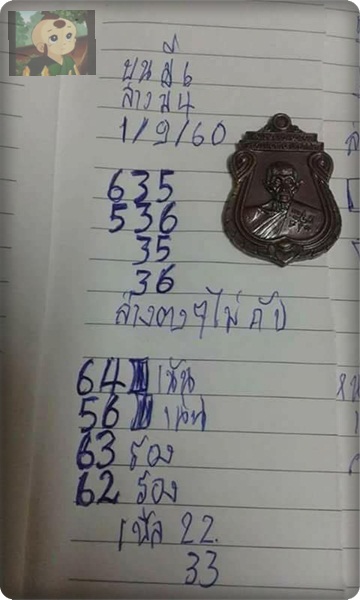 บน มี 6
ล่าง มี 4
1/9/60
635
536
35
36
ล่างตรงๆไม่กลับ
64 เน้น
56 เน้น
63 รอง
62 รอง
22
33